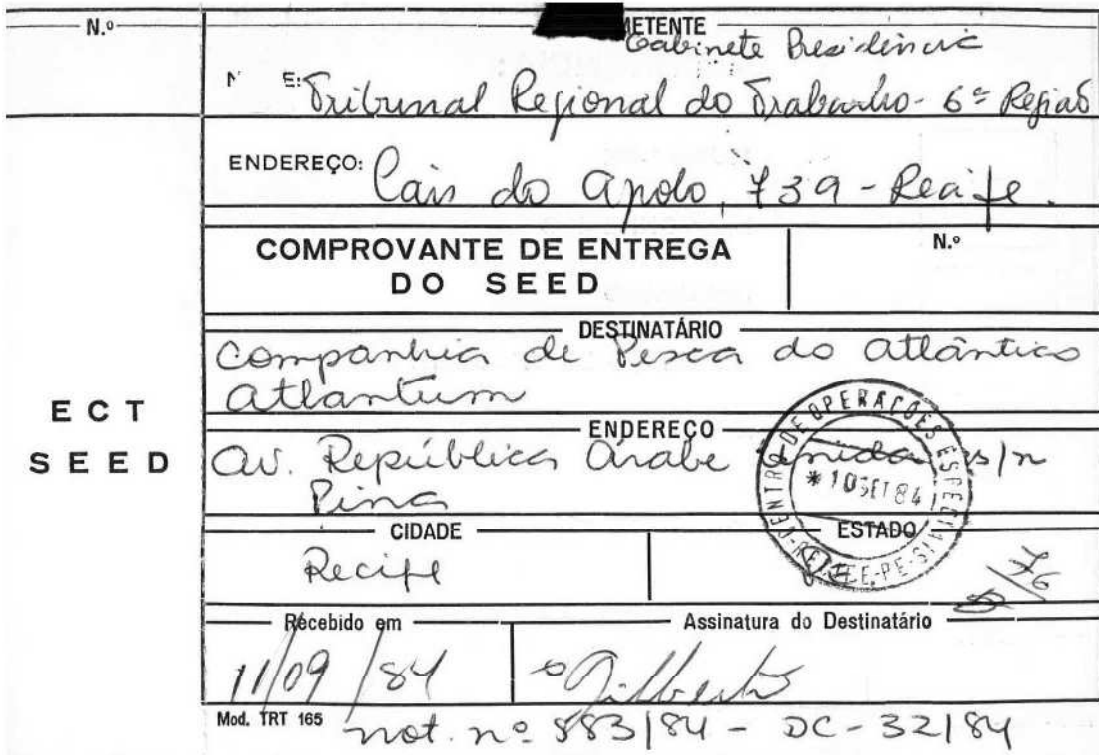 N.º
METENTE
Gabinete Presidência
N E:
Tribunal Regional do Trabalho - 6ª Região
ENDEREÇO: Cais do Apolo, 739 - Recife.
COMPROVANTE DE ENTREGA
DO SEED
N.º
DESTINATÁRIO
Companhia de Pesca do Atlântico
Atlantum
ECT
SEED
ENDEREÇO
Av. República Árabe Unida s/n
Pina
CENTRO DE OPERAÇÕES ESPECIAIS - RECIFE-PE
* 10 SET 84
CIDADE
Recife
ESTADO
PE
Recebido em
11/09/84
Assinatura do Destinatário
Gilberto
Mod. TRT 165
not. nº 583/84 - DC-32/84